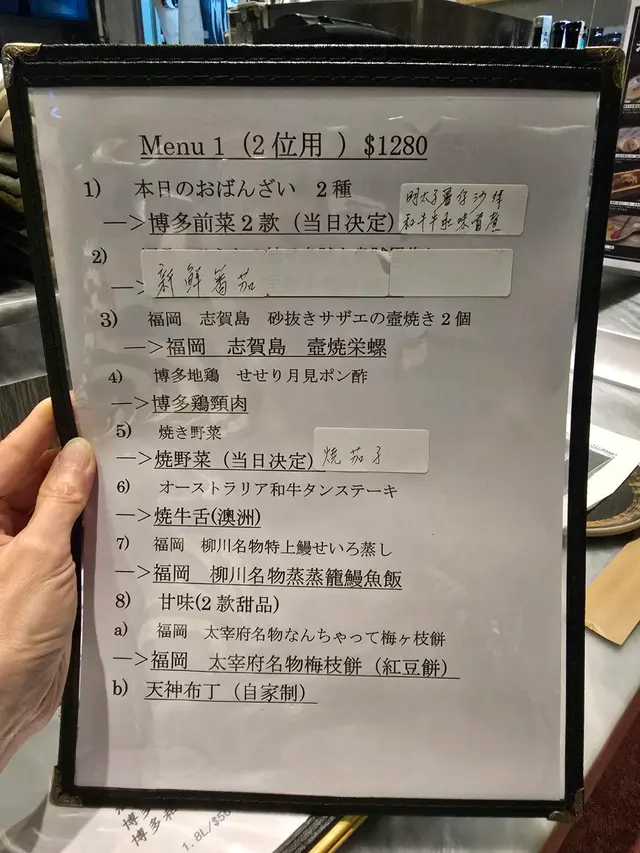 Menu 1（2 位用 ）$1280
1) 本日のおばんざい 2 種
明太子薯仔沙律
—>博多前菜 2 款（当日決定）
和牛牛肱味醤煮
2)
—> 新鮮蕃茄
3) 福岡 志賀島 砂抜きサザエの壺焼き 2 個
—>福岡 志賀島 壺焼栄螺
4) 博多地鶏 せせり月見ポン酢
—>博多鶏頸肉
5) 焼き野菜
—>焼野菜（当日決定） 焼茄子
6) オーストラリア和牛タンステーキ
—>焼牛舌(澳洲)
7) 福岡 柳川名物特上鰻せいろ蒸し
—>福岡 柳川名物蒸蒸籠鰻魚飯
8) 甘味(2 款甜品)
a) 福岡 太宰府名物なんちゃって梅ヶ枝餅
—>福岡 太宰府名物梅枝餅（紅豆餅）
b) 天神布丁（自家制）
博多
博多
1. 8L/$58